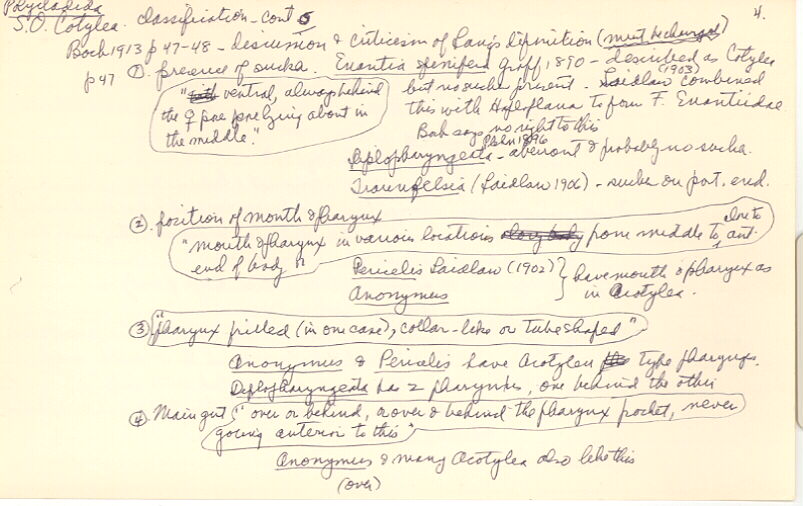 Polycladida
4.
S.O. Cotylea. classification - cont 5
Bock 1913 p 47-48 - discussion & criticism of Lang's definition (must be changed)
p 47 ① presence of sucker. Enantia spinifera Graff 1890 - described as Cotylea
but no sucker present. Laidlaw (1903) combined
this with Hoploplana to form F. Enantiidae.
Bock says no right to this
" ventral, always behind
the ♀ pore lying about in
the middle."
Diplopharyngeata - Plehn 1896 aberrant & probably no sucker.
Traunfelsia (Laidlaw 1906) - sucker on post. end.
② position of mouth & pharynx
"mouth & pharynx in various locations from middle to close to ant.
end of body"
Pericelis Laidlaw (1902) } have mouth & pharynx as
Anonymus in Acotylea.
③ "pharynx frilled (in one case), collar-like or tube shaped"
Anonymus & Pericelis have Acotylea type pharynges.
Diplopharyngeata has 2 pharynxes, one behind the other
④ Main gut "over or behind, or over & behind the pharynx pocket, never
going anterior to this"
Anonymus & many Acotylea also like this
(over)